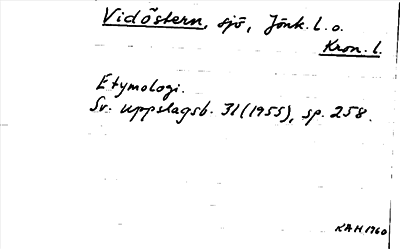 Vidöstern, sjö, Jönk. l. o.
Kron. l.
Etymologi.
Sv. uppslagsb. 31 (1955), sp. 258.
KAH 1960